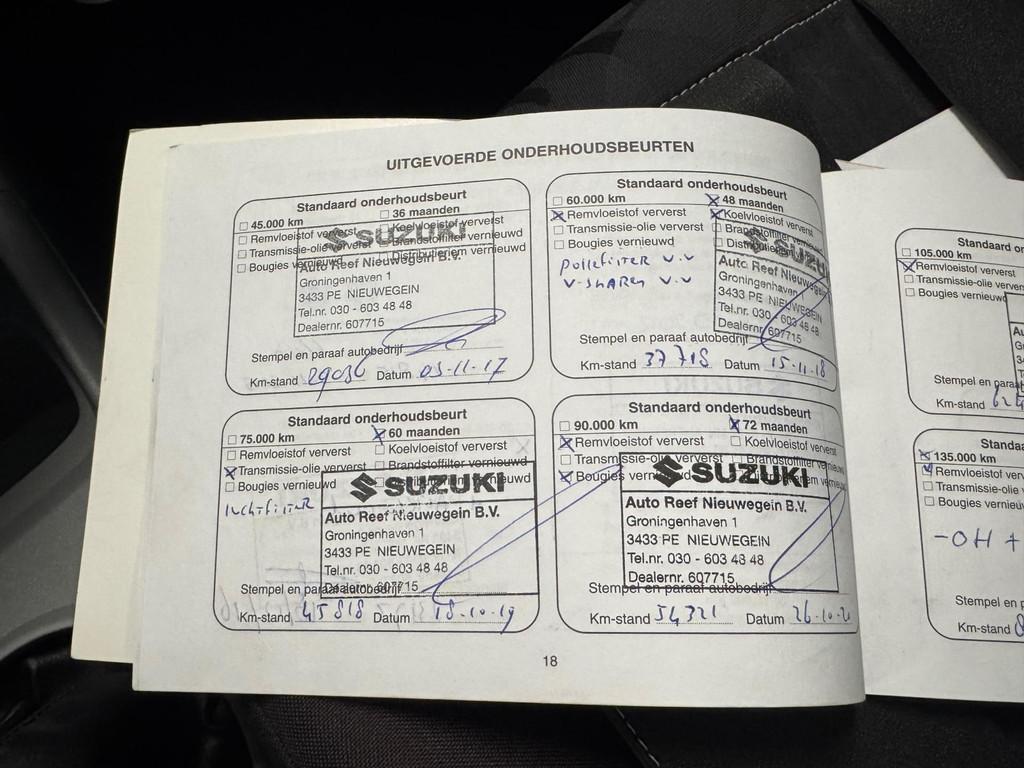 UITGEVOERDE ONDERHOUDSBEURTEN
Standaard onderhoudsbeurt
45.000 km 36 maanden
Remvloeistof ververst Koelvloeistof ververst
Transmissie-olie ververst Brandstoffilter vernieuwd
Bougies vernieuwd Distributieriem vernieuwd
SUZUKI
Auto Reef Nieuwegein B.V.
Groningenhaven 1
3433 PE NIEUWEGEIN
Tel.nr. 030 - 603 48 48
Dealernr. 607715
Stempel en paraaf autobedrijf
Km-stand 29036 Datum 03-11-17
Standaard onderhoudsbeurt
60.000 km 48 maanden
Remvloeistof ververst Koelvloeistof ververst
Transmissie-olie ververst Brandstoffilter
Bougies vernieuwd
pollefilter v.v
SUZUKI
Auto Reef Nieuwegein
Groningenhaven 1
3433 PE NIEUWEGEIN
Tel.nr. 030 - 603 48 48
Dealernr. 607715
Stempel en paraaf autobedrijf
Km-stand 37718 Datum 15-11-18
Standaard onderhoudsbeurt
75.000 km 60 maanden
Remvloeistof ververst Koelvloeistof ververst
Transmissie-olie ververst Brandstoffilter vernieuwd
Bougies vernieuwd
luchtfilter
SUZUKI
Auto Reef Nieuwegein B.V.
Groningenhaven 1
3433 PE NIEUWEGEIN
Tel.nr. 030 - 603 48 48
Dealernr. 607715
Stempel en paraaf autobedrijf
Km-stand 45818 Datum 18-10-19
Standaard onderhoudsbeurt
90.000 km 72 maanden
Remvloeistof ververst Koelvloeistof ververst
Transmissie-olie ververst Brandstoffilter vernieuwd
Bougies vernieuwd
SUZUKI
Auto Reef Nieuwegein B.V.
Groningenhaven 1
3433 PE NIEUWEGEIN
Tel.nr. 030 - 603 48 48
Dealernr. 607715
Stempel en paraaf autobedrijf
Km-stand 54321 Datum 26-10-20
18
Standaard
105.000 km
Remvloeistof ververst
Transmissie-olie
Bougies vernieuwd
Stempel en
Km-stand
135.000 km
Remvloeistof
Transmissie-olie
Bougies
-OH +
Stempel en
Km-stand